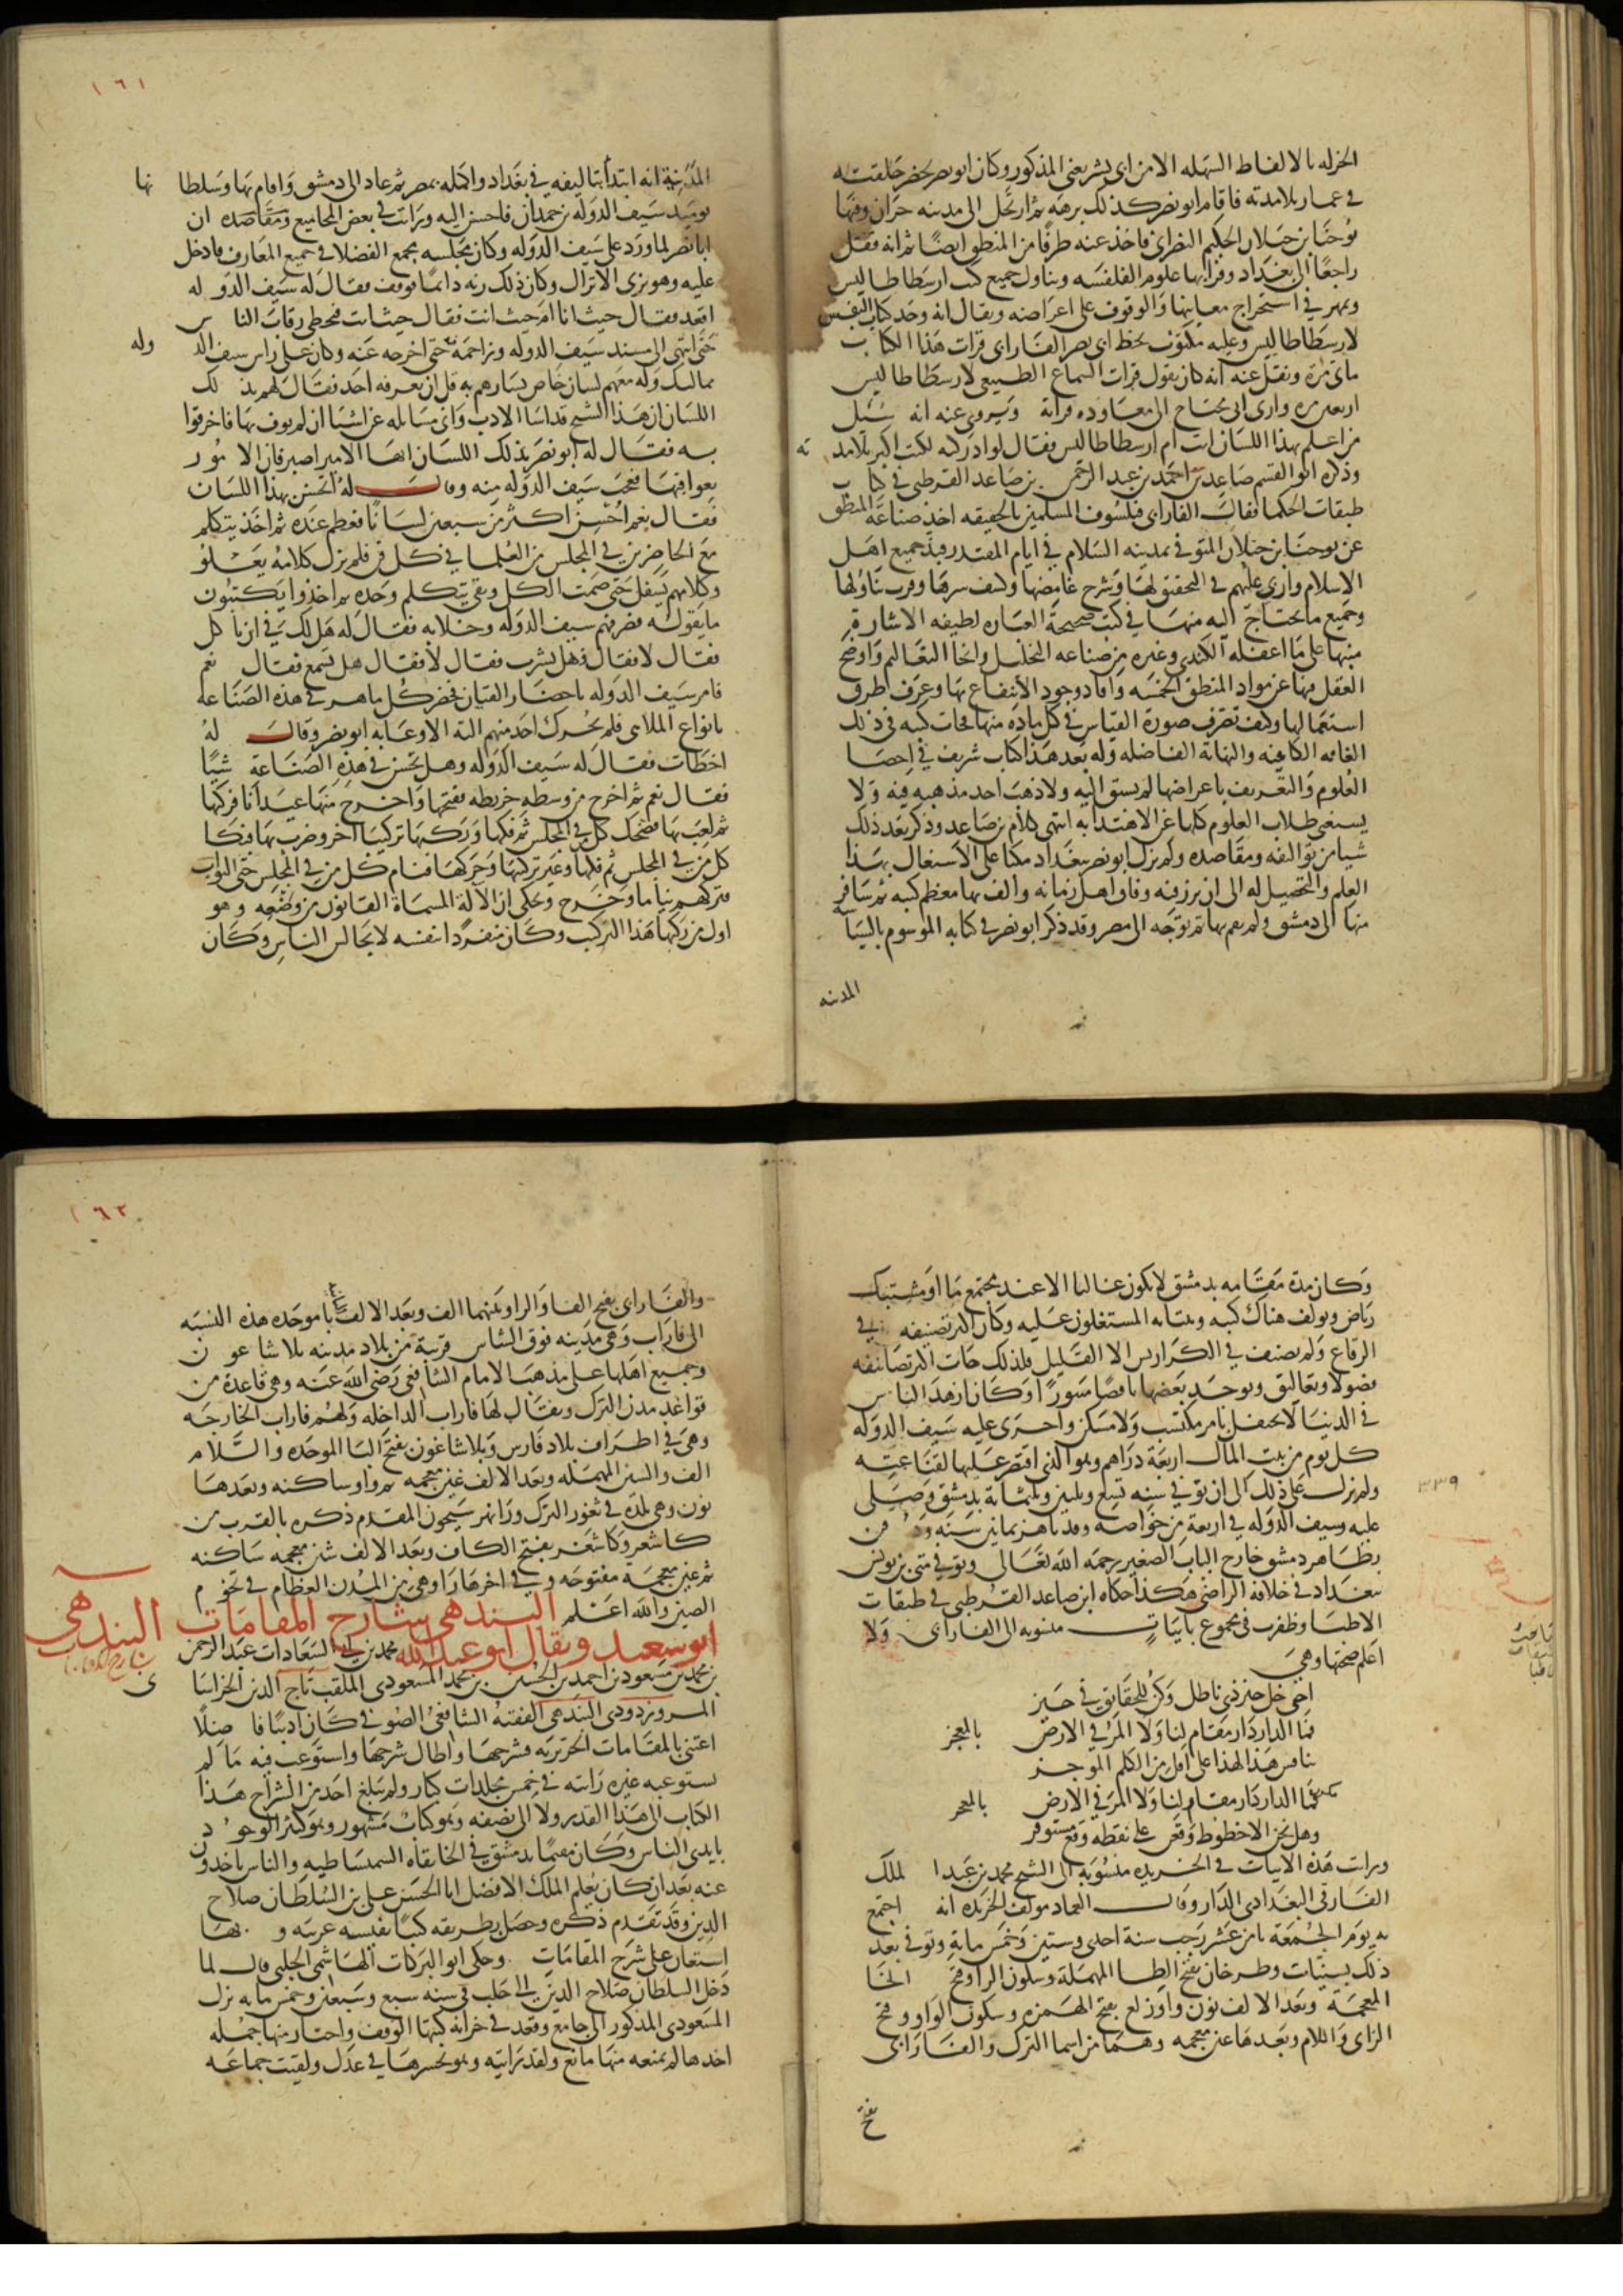 ١٦١
الجزله بالالفاظ السهله الا من ابى بشر يعنى المذكور وكان ابو نصر يحضر حلقته
فى غمار تلامدته فاقام ابو نصر كذلك برهه ثم ارتحل الى مدينه حران وفيها
يوحنا بن حيلان الحكيم النصرانى فاخذ عنه طرفا من المنطق ايضا ثم انه قفل
راجعا الى بغداد وقرا بها علوم الفلسفه وتناول جميع كتب ارسطاطاليس
وتمهر فى استخراج معانيها والوقوف على اغراضه ويقال انه وجد كتاب النفس
لارسطاطاليس وعليه مكتوب بخط ابى نصر الفارابى قرات هذا الكتاب
مايتى مرة ونقل عنه انه كان يقول قرات السماع الطبيعى لارسطاطاليس
اربعين مره وارى انى محتاج الى معاوده قراته ويروى عنه انه سئل
من اعلم بهذا اللسان انت ام ارسطاطاليس فقال لو ادركته لكنت اكبر تلامد ته
وذكره ابو القسم صاعد بن احمد بن عبد الرحمن بن صاعد القرطبى فى كتاب
طبقات الحكما فقال الفارابى فيلسوف المسلمين بالحقيقه اخذ صناعة المنطق
عن يوحنا بن حيلان المتوفى بمدينه السلام فى ايام المقتدر فبذ جميع اهل
الاسلام واربى عليهم فى التحقق لها وشرح غامضها وكشف سرها وقرب تناولها
وجميع ما يحتاج اليه منها فى كتب صحيحة العباره لطيفه الاشارة
منبها على ما اغفله الكندى وغيره من صناعه التحليل وانحا التعاليم واوضح
العقل فيها عن مواد المنطق الخمسه وافاد وجوه الانتفاع بها وعرف طرق
استعمالها وكيف تصرف صورة القياس فى كل ماده منها فجات كتبه فى ذلك
الغايه الكافيه والنهاية الفاضله وله بعد هذا كتاب شريف فى احصا
العلوم والتعريف باغراضها لم يسبق اليه ولا ذهب احد مذهبه فيه ولا
يستغنى طلاب العلوم كلها عن الاهتدا به انتهى كلام بن صاعد وذكر بعد ذلك
شيا من تواليفه ومقاصده ولم يزل ابو نصر ببغداد مكبا على الاشتغال بهذا
العلم والتحصيل له الى ان برز فيه وفاق اهل زمانه والف بها معظم كتبه ثم سافر
منها الى دمشق ولم يقم بها ثم توجه الى مصر وقد ذكر ابو نصر فى كتابه الموسوم بالسياسة
المدنيه
المدنية انه ابتدا بتاليفه فى بغداد واكمله بمصر ثم عاد الى دمشق واقام بها وسلطا نها
يوميد سيف الدوله بن حمدان فاحسن اليه ورايت فى بعض المجاميع ومقاصده ان
ابا نصر لما ورد على سيف الدوله وكان مجلسه مجمع الفضلا فى جميع المعارف فادخل
عليه وهو بزى الاتراك وكان ذلك زيه دائما فوقف فقال له سيف الدو له
اقعد فقال حيث انا ام حيث انت فقال حيث انت فتخطى رقاب الناس
حتى انتهى الى مسند سيف الدوله وزاحمه حتى اخرجه عنه وكان على راس سيف الد وله
مماليك وله معهم لسان خاص يسارهم به قل ان يعرفه احد فقال لهم بذلك
اللسان ان هذا الشيخ قد اسا الادب وانى مسائله عن اشيا ان لم يوف بها فاخرقوا
به فقال له ابو نصر بذلك اللسان ايها الامير اصبر فان الامور
بعواقبها فعجب سيف الدوله منه وقال له اتحسن بهذا اللسان
فقال نعم احسن اكثر من سبعين لسانا فعظم عنده ثم اخذ يتكلم
مع الحاضرين فى المجلس من العلما فى كل فن فلم يزل كلامه يعلو
وكلامهم يسفل حتى صمت الكل وبقى يتكلم وحده ثم اخذوا يكتبون
ما يقوله فصرفهم سيف الدوله وخلا به فقال له هل لك فى ان تاكل
فقال لا فقال فهل تشرب فقال لا فقال هل تسمع فقال نعم
فامر سيف الدوله باحضار القيان فحضر كل ماهر فى هذه الصناعه
بانواع الملاهى فلم يحرك احد منهم الته الا وعابه ابو نصر وقال له
اخطات فقال له سيف الدوله وهل تحسن فى هذه الصناعة شيا
فقال نعم ثم اخرج من وسطه خريطه ففتحها واخرج منها عيدانا فركبها
ثم لعب بها فضحك كل من فى المجلس ثم فكها وركبها تركيبا اخر وضرب بها فبكا
كل من فى المجلس ثم فكها وغير تركيبها وحركها فنام كل من فى المجلس حتى البواب
فتركهم نياما وخرج وحكى ان الآلة المسماة القانون من وضعه وهو
اول من ركبها هذا التركيب وكان منفردا بنفسه لا يجالس الناس وكان
١٦٢
وكان مدة مقامه بدمشق لا يكون غالبا الا عند مجتمع ما او مشتبك
رياض ويولف هناك كتبه وينتابه المشتغلون عليه وكان اكثر تصنيفه فى
الرقاع ولم يصنف فى الكراريس الا القليل فلذلك جات اكثر تصانيفه
فصولا وتعاليق ويوجد بعضها ناقصا مبتورا وكان ازهد الناس
فى الدنيا لا يحتفل بامر مكسب ولا مسكن واجرى عليه سيف الدوله
كل يوم من بيت المال اربعة دراهم وهو الذى اقتصر عليها لقناعته
ولم يزل على ذلك الى ان توفى فى سنه تسع وثلثين وثلثماية بدمشق وصلى
٣٣٩
عليه سيف الدوله فى اربعة من خواصه وقد ناهز ثمانين سنه ودفن
بظاهر دمشق خارج الباب الصغير رحمه الله تعالى وتوفى متى بن يونس
ببغداد فى خلافه الراضى هكذا حكاه ابن صاعد القرطبى فى طبقات
الاطبا وظفرت فى مجموع بابيات منسوبه الى الفارابى ولا
اعلم صحتها وهى
اخى خل حيز ذى باطل وكن للحقايق فى حيز
فما الدار دار مقام لنا ولا المرء فى الارض بالمعجز
ينافس هذا لهذا على اقل من الكلم الموجز
فما الدار دار مقام لنا ولا المر فى الارض بالمعجز
وهل نحن الا خطوط وقعن على نقطه وقع مستوفز
ورايت هذه الابيات فى الخريده منسوبة الى الشيخ محمد بن عبد الملك
الفارقى البغدادى الدار وقال العماد مولف الخريده انه اجتمع
به يوم الجمعة ثامن عشر رجب سنة احدى وستين وخمس ماية وتوفى بعد
ذلك بسنيات وطرخان بفتح الطا المهملة وسكون الرا وفتح الخا
المعجمة وبعد الالف نون واوزلغ بفتح الهمزه وسكون الواو وفتح
الزاى واللام وبعدها غين معجمه وهما من اسما الترك والفارابى
بفتح
والفارابى بفتح الفا والرا وبينهما الف وبعد الالف با موحده هذه النسبه
الى فاراب وهى مدينه فوق الشاس قريبة من بلاد مدينه بلاشاغون
وجميع اهلها على مذهب الامام الشافعى رضى الله عنه وهى قاعدة من
قواعد مدن الترك ويقال لها فاراب الداخله ولهم فاراب الخارجه
وهى فى اطراف بلاد فارس وبلاشاغون بفتح البا الموحده والسلام
الف والشين المهمله وبعد الالف غين معجمه ثم واو ساكنه وبعدها
نون وهى بلده فى ثغور الترك ورا نهر سيحون المقدم ذكره بالقرب من
كاشغر وكاشغر بفتح الكاف وبعد الالف شين معجمه ساكنه
ثم غين معجمه مفتوحه وفى اخرها را وهى من المدن العظام فى تخوم
الصين والله اعلم البندهى شارح المقامات البندهى
ابو سعيد ويقال ابو عبد الله محمد بن ابى السعادات عبد الرحمن
بن محمد بن مسعود بن احمد بن الحسين بن محمد المسعودى الملقب تاج الدين الخراسانى
المروروذى البندهى الفقيه الشافعى الصوفى كان اديبا فاضلا
اعتنى بالمقامات الحريريه فشرحها واطال شرحها واستوعب فيه ما لم
يستوعبه غيره رايته فى خمس مجلدات كبار ولم يبلغ احد من الشراح هذا
الكتاب الى هذا القدر ولا الى نصفه وهو كتاب مشهور وهو كثير الوجود
بايدى الناس وكان مقيما بدمشق فى الخانقاه السمساطيه والناس ياخدون
عنه بعد ان كان يعلم الملك الافضل ابا الحسن على بن السلطان صلاح
الدين وقد تقدم ذكره وحصل بطريقه كتبا نفيسه غريبه وبها
استعان على شرح المقامات وحكى ابو البركات الهاشمى الحلبى قال لما
دخل السلطان صلاح الدين الى حلب فى سنه سبع وسبعين وخمس مايه نزل
المسعودى المذكور الى جامع وقعد فى خزانه كتبها الوقف واختار منها جمله
اخدها لم يمنعه منها مانع ولقد رايته وهو يحشرها فى عدل ولقيت جماعه